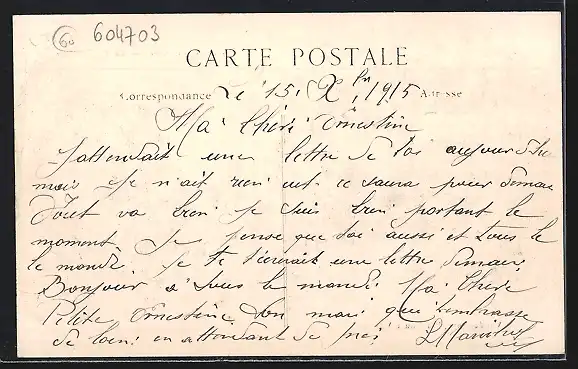 60 604703
CARTE POSTALE
Correspondance Le 15. X bre 1915 Adresse
Ma Chère Ernestine
J'attendait une lettre de toi aujourd'hui
mais je n'ait rien eut ce saura pour demain
Tout va bien je suis bien portant le
moment je pense que toi aussi et tous le
le monde. Je te s'ecrirait une lettre demain,
Bonjour a tous le monde. Ma Chere
Petite Ernestine ton mari qui t'embrasse
de loin en attendant de près